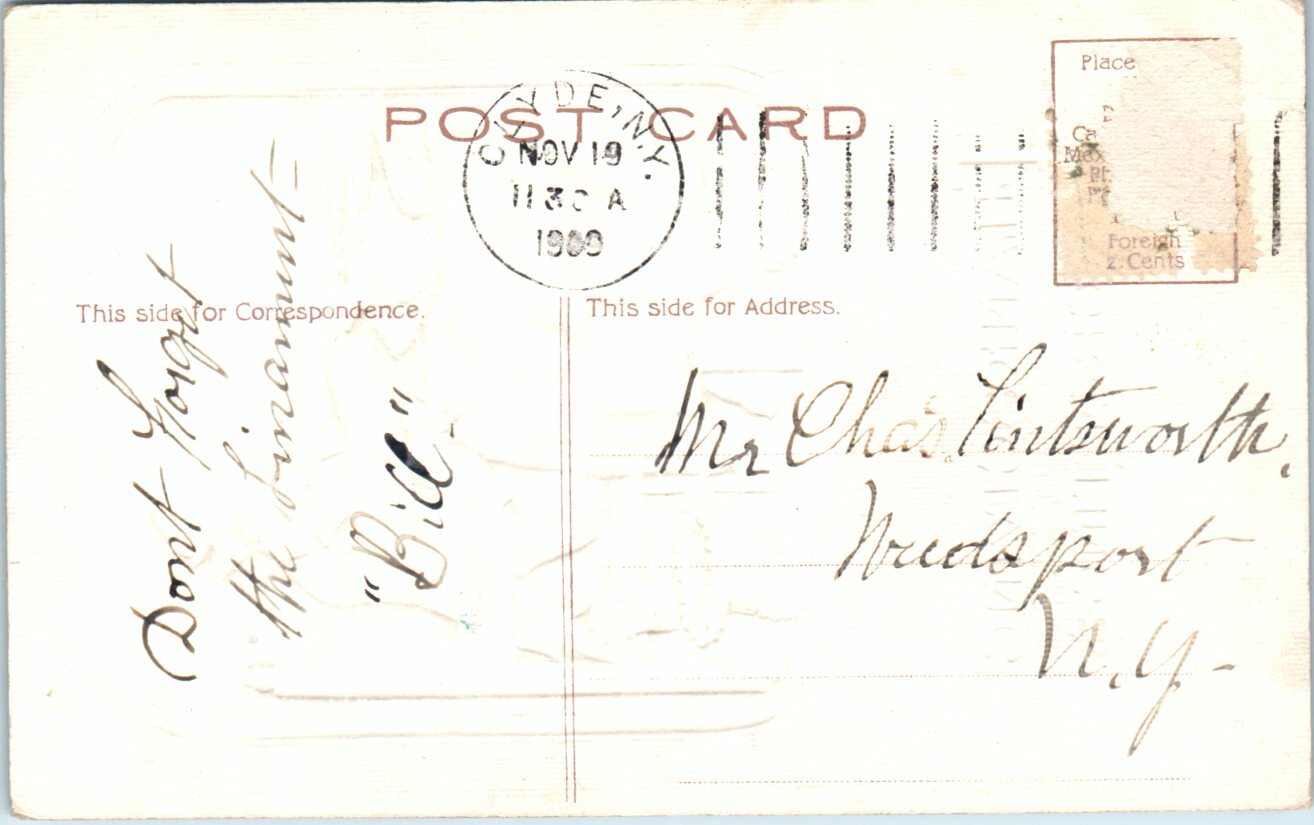 POST CARD
CLYDE, N.Y.
NOV 19
1130 A
1909
Place
Ca
Mex
Foreign
2 Cents
This side for Correspondence.
This side for Address.
Dont Forget
the Linament-
"Bill"
Mr Chas. Tintsworth,
Weedsport
N.Y-